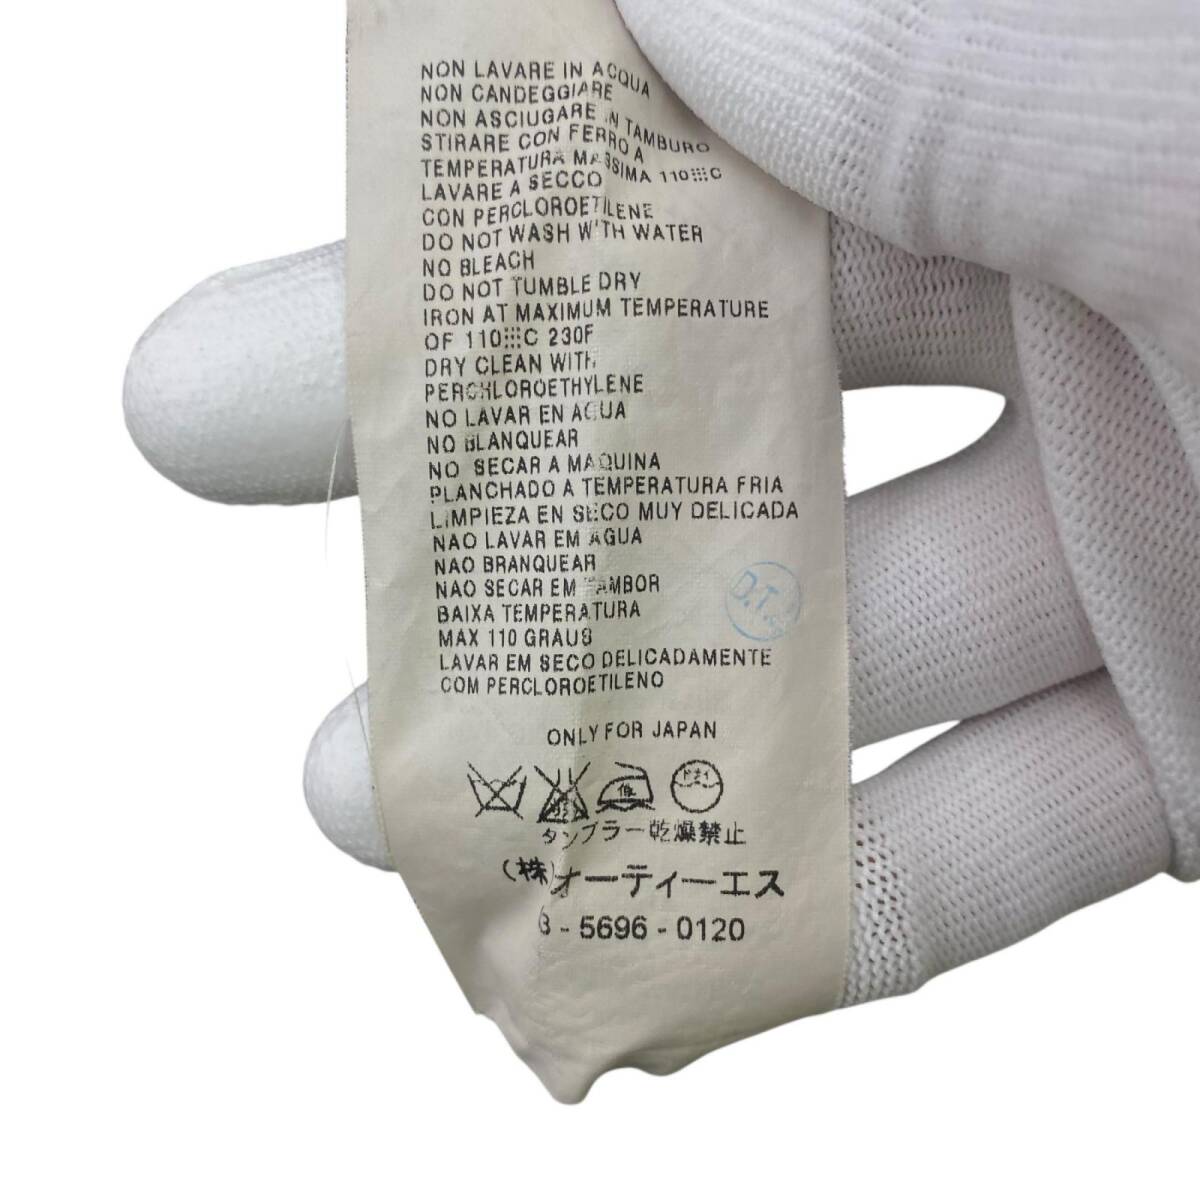 NON LAVARE IN ACQUA
NON CANDEGGIARE
NON ASCIUGARE IN TAMBURO
STIRARE CON FERRO A
TEMPERATURA MASSIMA 110 C
LAVARE A SECCO
CON PERCLOROETILENE
DO NOT WASH WITH WATER
NO BLEACH
DO NOT TUMBLE DRY
IRON AT MAXIMUM TEMPERATURE
OF 110 C 230F
DRY CLEAN WITH
PERCHLOROETHYLENE
NO LAVAR EN AGUA
NO BLANQUEAR
NO SECAR A MAQUINA
PLANCHADO A TEMPERATURA FRIA
LIMPIEZA EN SECO MUY DELICADA
NAO LAVAR EM AGUA
NAO BRANQUEAR
NAO SECAR EM TAMBOR
BAIXA TEMPERATURA
MAX 110 GRAUS
LAVAR EM SECO DELICADAMENTE
COM PERCLOROETILENO
D.T.
ONLY FOR JAPAN
低 ドライ
タンブラー乾燥禁止
(株)オーティーエス
3 - 5696 - 0120